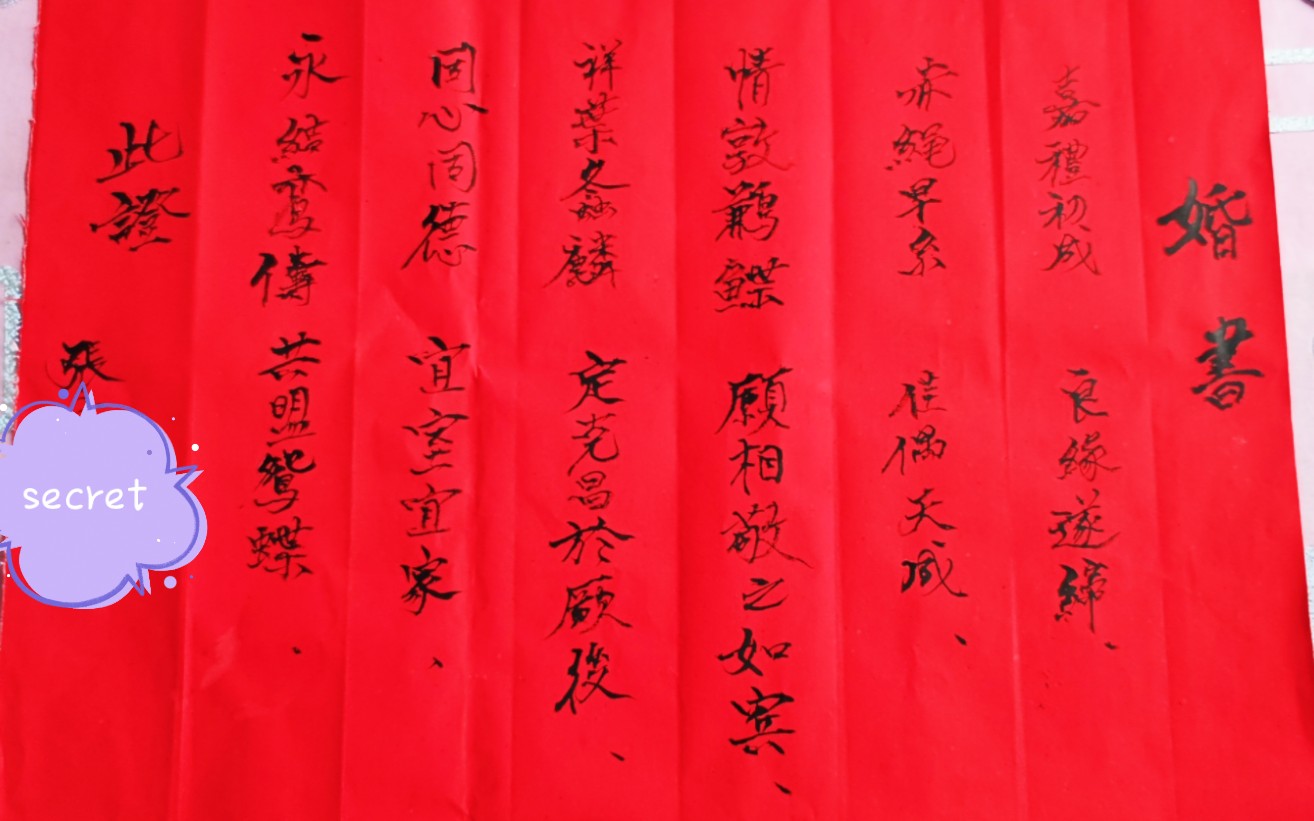 婚書
嘉禮初成 良緣遂締、
赤繩早系 佳偶天成、
情敦鶼鰈 願相敬之如宾、
祥葉螽麟 定克昌於厥後、
同心同德 宜室宜家、
永結鸾儔 共盟鴛蝶、
此證 張
secret